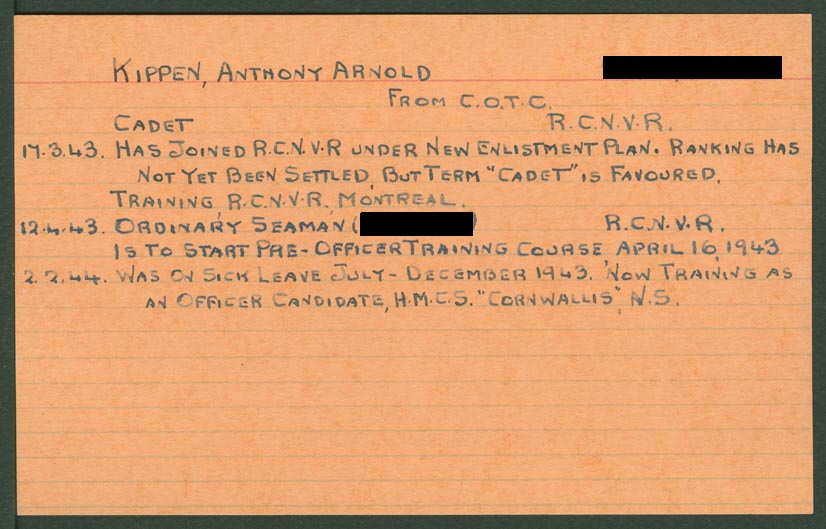 KIPPEN, ANTHONY ARNOLD
FROM C.O.T.C.
CADET R.C.N.V.R.
17.3.43. HAS JOINED R.C.N.V.R UNDER NEW ENLISTMENT PLAN. RANKING HAS
NOT YET BEEN SETTLED, BUT TERM "CADET" IS FAVOURED.
TRAINING, R.C.N.V.R. MONTREAL.
12.4.43. ORDINARY SEAMAN ( ) R.C.N.V.R.
IS TO START PRE-OFFICER TRAINING COURSE APRIL 16, 1943
2.2.44. WAS ON SICK LEAVE JULY - DECEMBER 1943. NOW TRAINING AS
AN OFFICER CANDIDATE, H.M.C.S. "CORNWALLIS", N.S.